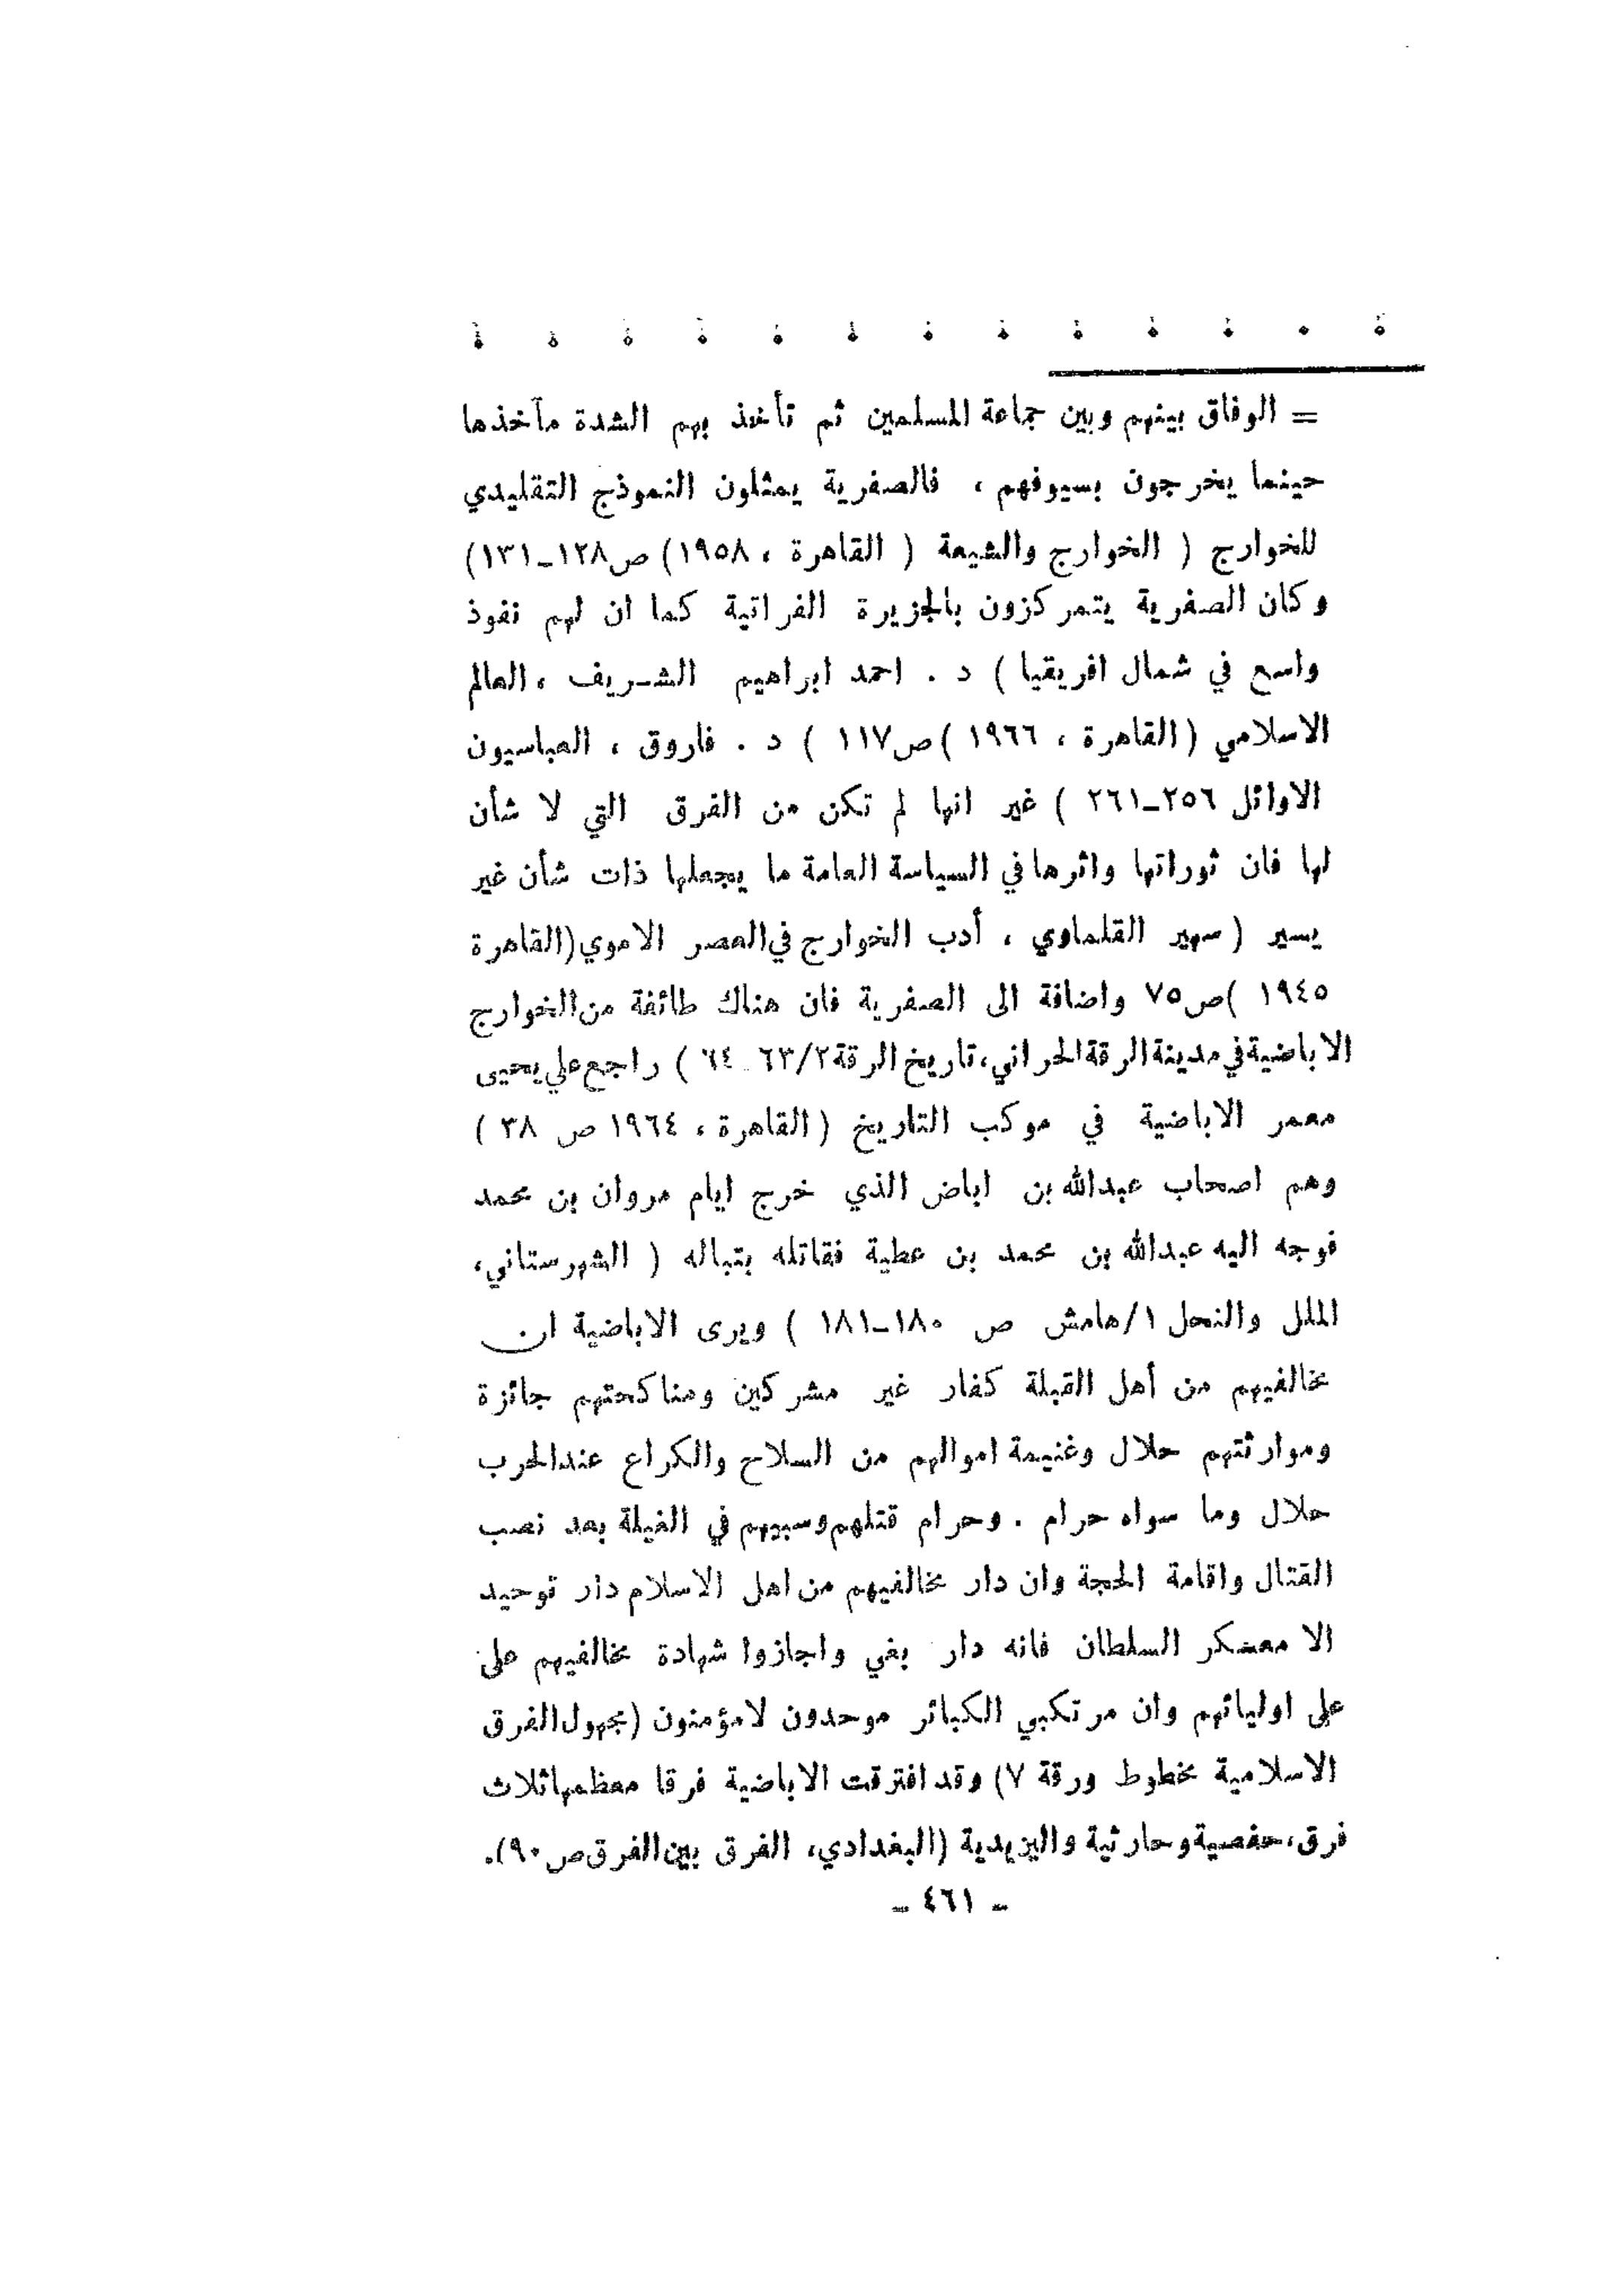 = الوفاق بينهم وبين جماعة المسلمين ثم تأخذ بهم الشدة مآخذها
حينما يخرجون بسيوفهم ، فالصفرية يمثلون النموذج التقليدي
للخوارج ( الخوارج والشيعة ( القاهرة ، ١٩٥٨) ص١٢٨ـ١٣١)
وكان الصفرية يتمركزون بالجزيرة الفراتية كما ان لهم نفوذ
واسع في شمال افريقيا ) د . احمد ابراهيم الشـريف ، العالم
الاسلامي (القاهرة ، ١٩٦٦ )ص١١٧ ) د . فاروق ، العباسيون
الاوائل ٢٥٦ـ٢٦١ ) غير انها لم تكن من الفرق التي لا شأن
لها فان ثوراتها واثرها في السياسة العامة ما يجعلها ذات شأن غير
يسير (سهير القلماوي ، أدب الخوارج في العصر الاموي(القاهرة
١٩٤٥ )ص٧٥ واضافة الى الصفرية فان هناك طائفة من الخوارج
الاباضية في مدينة الرقة الحراني، تاريخ الرقة ٦٣/٢ـ٦٤ ) راجع علي يحيى
معمر الاباضية في موكب التاريخ (القاهرة ، ١٩٦٤ ص ٣٨ )
وهم اصحاب عبدالله بن اباض الذي خرج ايام مروان بن محمد
فوجه اليه عبدالله بن محمد بن عطية فقاتله بتباله ( الشهرستاني،
الملل والنحل ١/هامش ص ١٨٠ـ١٨١ ) ويرى الاباضية ان
مخالفيهم من أهل القبلة كفار غير مشركين ومناكحتهم جائزة
وموارثتهم حلال وغنيمة اموالهم من السلاح والكراع عندالحرب
حلال وما سواه حرام . وحرام قتلهم وسبيهم في الغيلة بعد نصب
القتال واقامة الحجة وان دار مخالفيهم من اهل الاسلام دار توحيد
الا معسكر السلطان فانه دار بغي واجازوا شهادة مخالفيهم على
على اوليائهم وان مرتكبي الكبائر موحدون لامؤمنون (مجهول الفرق
الاسلامية مخطوط ورقة ٧) وقد افترقت الاباضية فرقا معظمها ثلاث
فرق، حفصية وحارثية واليزيدية (البغدادي، الفرق بين الفرق ص٩٠).
ـ ٤٦١ ـ